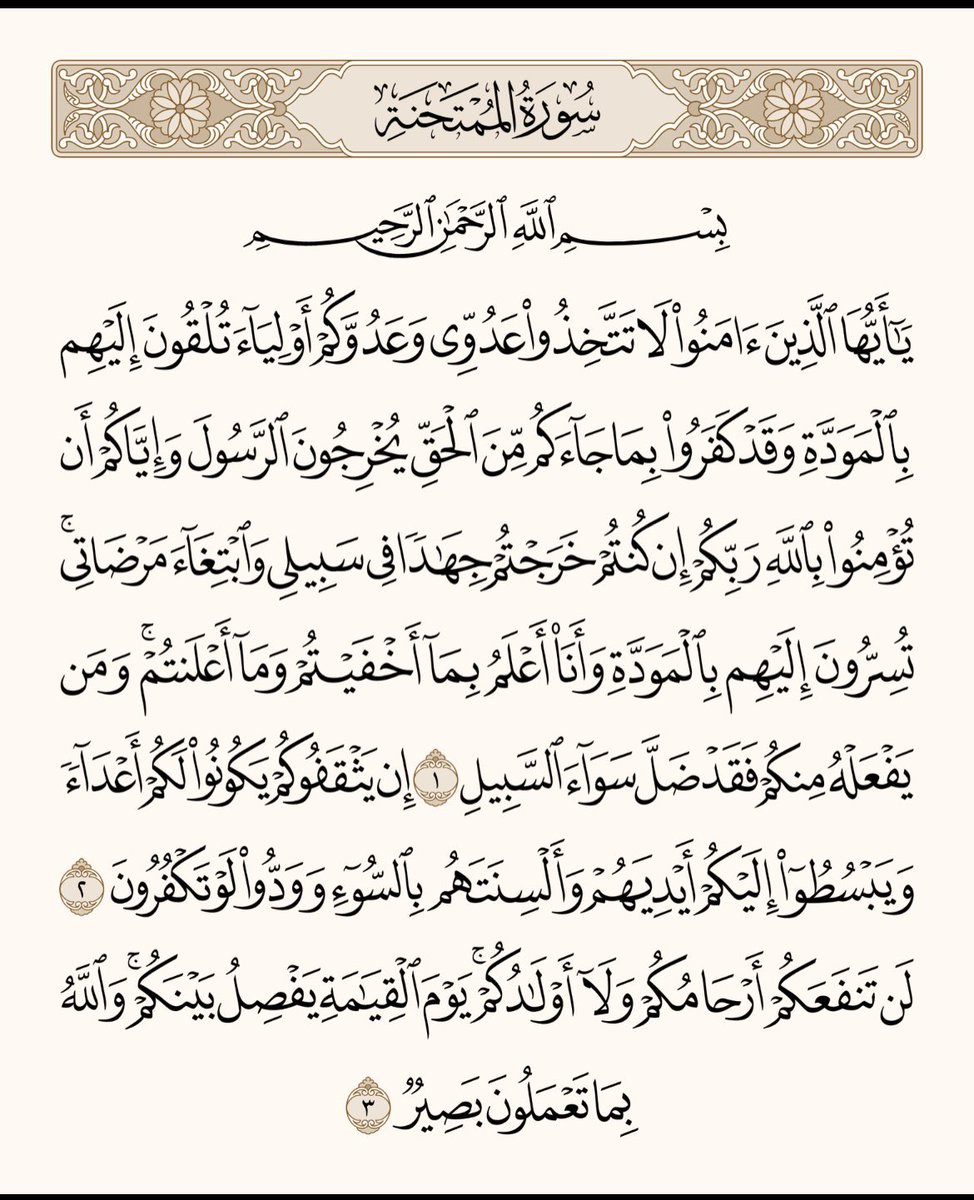 سُورَةُ المُمْتَحَنَةِ
بِسْمِ ٱللَّهِ ٱلرَّحْمَٰنِ ٱلرَّحِيمِ
يَٰٓأَيُّهَا ٱلَّذِينَ ءَامَنُوا۟ لَا تَتَّخِذُوا۟ عَدُوِّى وَعَدُوَّكُمْ أَوْلِيَآءَ تُلْقُونَ إِلَيْهِم
بِٱلْمَوَدَّةِ وَقَدْ كَفَرُوا۟ بِمَا جَآءَكُم مِّنَ ٱلْحَقِّ يُخْرِجُونَ ٱلرَّسُولَ وَإِيَّاكُمْ أَن
تُؤْمِنُوا۟ بِٱللَّهِ رَبِّكُمْ إِن كُنتُمْ خَرَجْتُمْ جِهَٰدًا فِى سَبِيلِى وَٱبْتِغَآءَ مَرْضَاتِى ۚ
تُسِرُّونَ إِلَيْهِم بِٱلْمَوَدَّةِ وَأَنَا۠ أَعْلَمُ بِمَآ أَخْفَيْتُمْ وَمَآ أَعْلَنتُمْ ۚ وَمَن
يَفْعَلْهُ مِنكُمْ فَقَدْ ضَلَّ سَوَآءَ ٱلسَّبِيلِ ١ إِن يَثْقَفُوكُمْ يَكُونُوا۟ لَكُمْ أَعْدَآءً
وَيَبْسُطُوٓا۟ إِلَيْكُمْ أَيْدِيَهُمْ وَأَلْسِنَتَهُم بِٱلسُّوٓءِ وَوَدُّوا۟ لَوْ تَكْفُرُونَ ٢
لَن تَنفَعَكُمْ أَرْحَامُكُمْ وَلَآ أَوْلَٰدُكُمْ ۚ يَوْمَ ٱلْقِيَٰمَةِ يَفْصِلُ بَيْنَكُمْ ۚ وَٱللَّهُ
بِمَا تَعْمَلُونَ بَصِيرٌ ٣